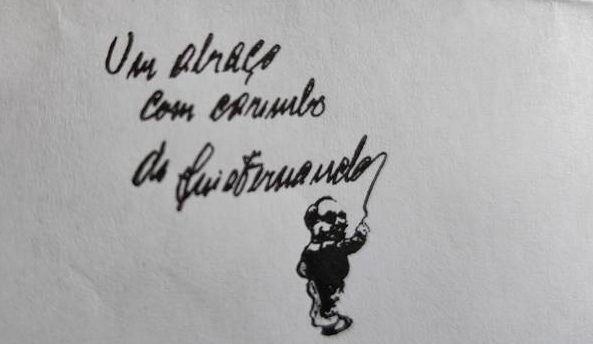 Um abraço
com carimbo
do Luis Fernando